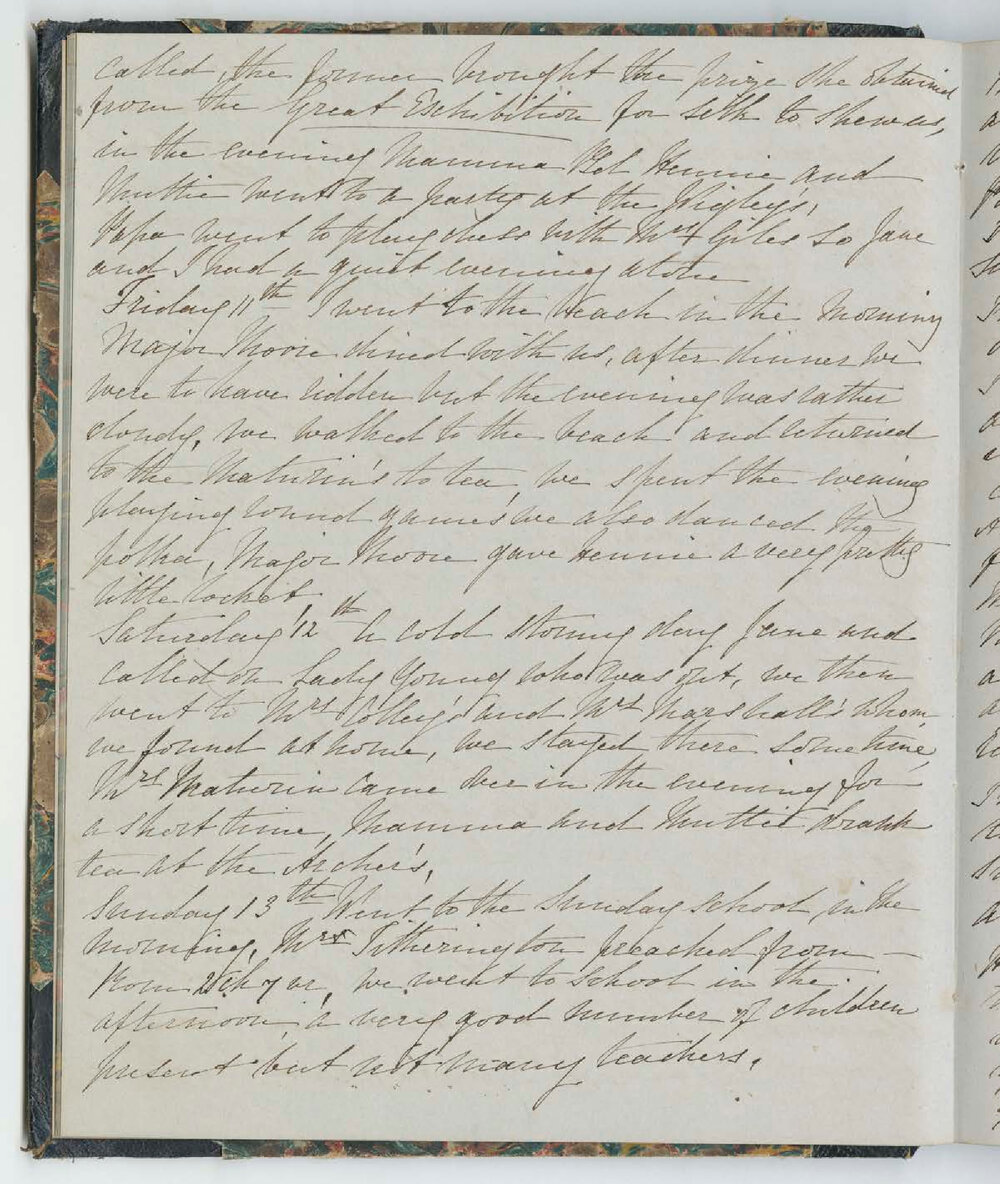 called, the former brought the prize she obtained
from the Great Exhibition for silk to shew us,
in the evening Mamma Hennie and
Muttie went to a party at the Wigleys,
Papa went to play chess with Mr Giles so Jane
and I had a quiet evening alone
Friday 11th I went to the beach in the morning
Major Moore dined with us, after dinner we
were to have ridden but the evening was rather
cloudy, we walked to the beach and returned
to the Maturin's to tea, we spent the evening
playing round games we also danced the
polka, Major Moore gave Hennie a very pretty
little locket,
Saturday 12th A cold stormy day Jane and
called on Lady Young who was out, we then
went to Mrs and Mrs Marshall's whom
we found at home, we stayed there some time,
Mrs Maturin came over in the evening for
a short time, Mamma and Muttie drank
tea at the Archer's,
Sunday 13th Went to the Sunday school in the
morning, Mr Titherington preached from —
Rom ch 7 vr, we went to school in the
afternoon, a very good number of children
present but not many teachers.